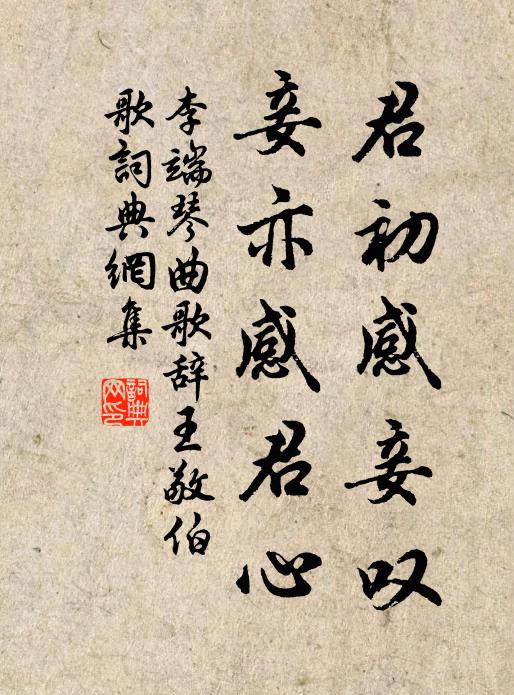 君初感妾叹
妾亦感君心
李端琴曲歌辞王敬伯
歌詞典網集
詞典网印